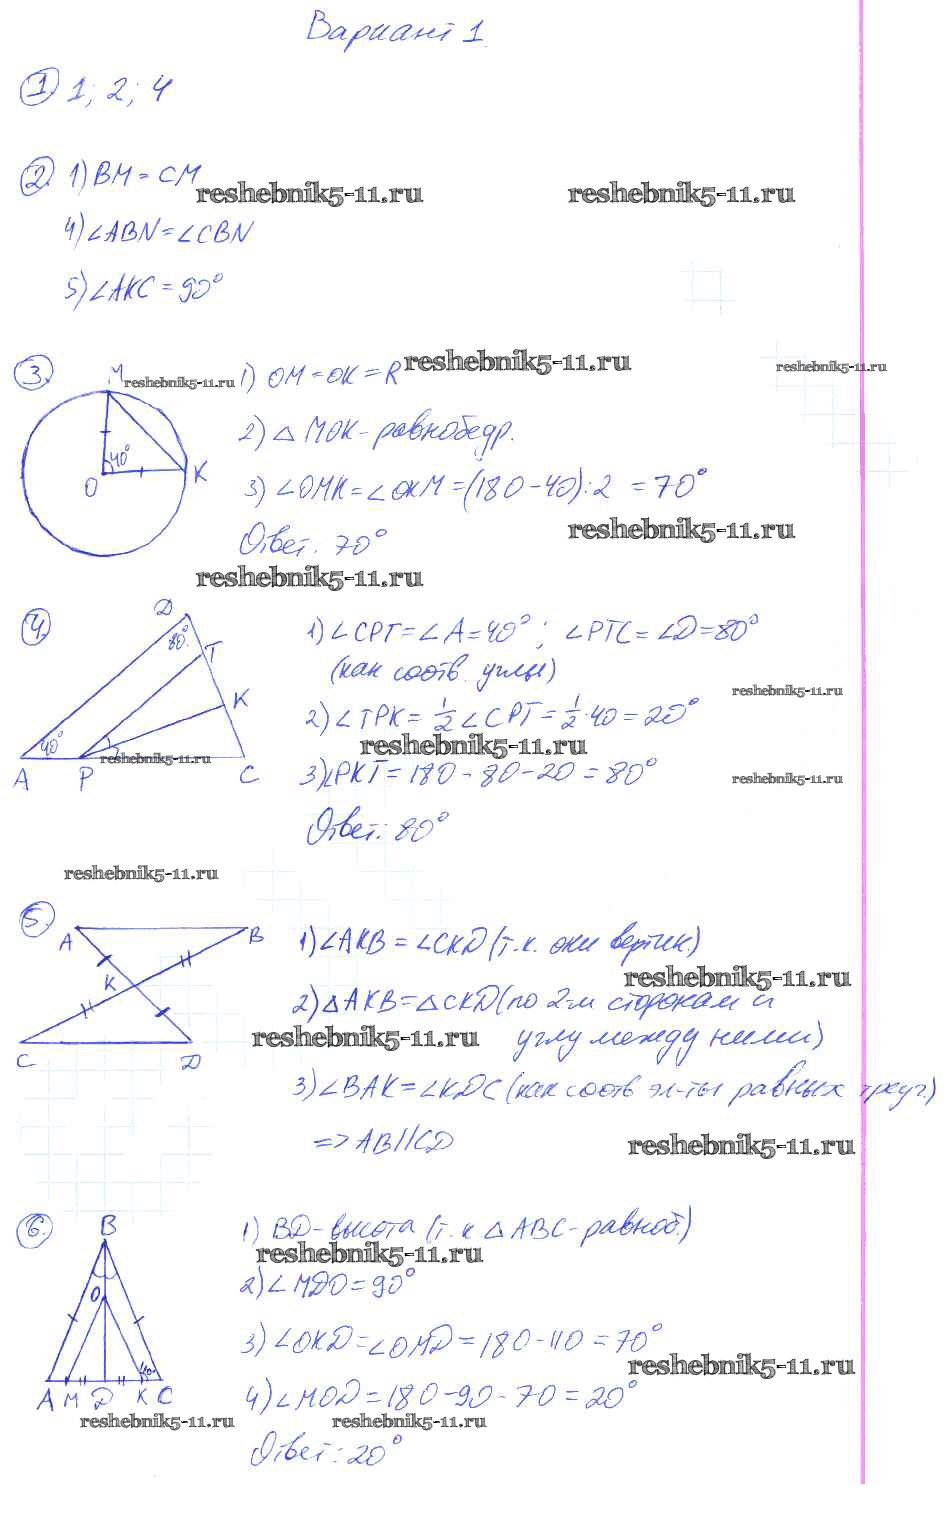 Вариант 1.
1. 1; 2; 4
2. 1) BM = CM
reshebnik5-11.ru reshebnik5-11.ru
4) ∠ABN = ∠CBN
5) ∠AKC = 90°
3. M
reshebnik5-11.ru
1) OM = OK = R
reshebnik5-11.ru
reshebnik5-11.ru
2) △ MOK - равнобедр.
40°
O K
3) ∠OMK = ∠OKM = (180 - 40) : 2 = 70°
Ответ. 70°
reshebnik5-11.ru
reshebnik5-11.ru
4.
D
80°
T
K
40°
A P C
reshebnik5-11.ru
1) ∠CPT = ∠A = 40° ; ∠PTC = ∠D = 80°
(как соотв. углы)
reshebnik5-11.ru
2) ∠TPK = 1/2 ∠CPT = 1/2 · 40 = 20°
reshebnik5-11.ru
3) ∠PKT = 180 - 80 - 20 = 80°
reshebnik5-11.ru
Ответ: 80°
reshebnik5-11.ru
5.
A B
K
C D
1) ∠AKB = ∠CKD (т.к. они вертик.)
reshebnik5-11.ru
2) △AKB = △CKD (по 2-м сторонам и
reshebnik5-11.ru
углу между ними)
3) ∠BAK = ∠KDC (как соотв эл-ты равных треуг.)
=> AB//CD
reshebnik5-11.ru
6.
B
O
A M D K C
1) BD - высота (т. к △ ABC - равноб.)
reshebnik5-11.ru
2) ∠MDO = 90°
3) ∠OKD = ∠OMD = 180 - 110 = 70°
reshebnik5-11.ru
4) ∠MOD = 180 - 90 - 70 = 20°
reshebnik5-11.ru reshebnik5-11.ru
Ответ: 20°